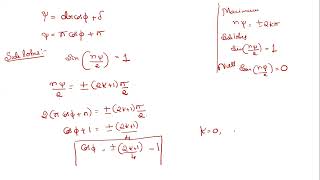 ψ = dr cosφ + δ
ψ = π cosφ + π
Side lobes:
sin(nψ/2) = 1
nψ/2 = ±(2k+1)π/2
2(π cosφ + π) = ±(2k+1)π/2
cosφ + 1 = ±(2k+1)/4
cosφ = ±(2k+1)/4 - 1
Maximum
nψ = ±2kπ
Side lobes
sin(nψ/2) = 1
Null sin(nψ/2) = 0
k=0,